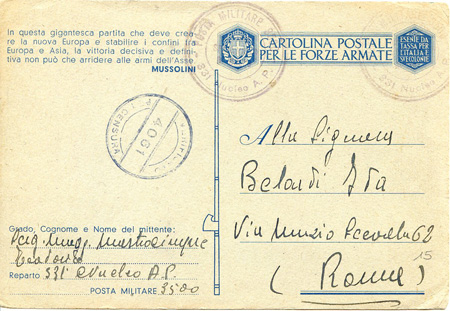 In questa gigantesca partita che deve crea-
re la nuova Europa e stabilire i confini tra
Europa e Asia, la vittoria decisiva e defini-
tiva non può che arridere alle armi dell'Asse.
MUSSOLINI
POSTA MILITARE
Nucleo A. P.
CARTOLINA POSTALE
PER LE FORZE ARMATE
ESENTE DA
TASSA PER
L'ITALIA E
SVE COLONIE
Nucleo A. P.
4061
CENSURA
Alla Signora
Belardi Ida
Via Muzio Scevola 62
15
(Roma)
Grado, Cognome e Nome del mittente:
Serg. Magg.
Reparto 331° Nucleo A.P.
POSTA MILITARE 3500